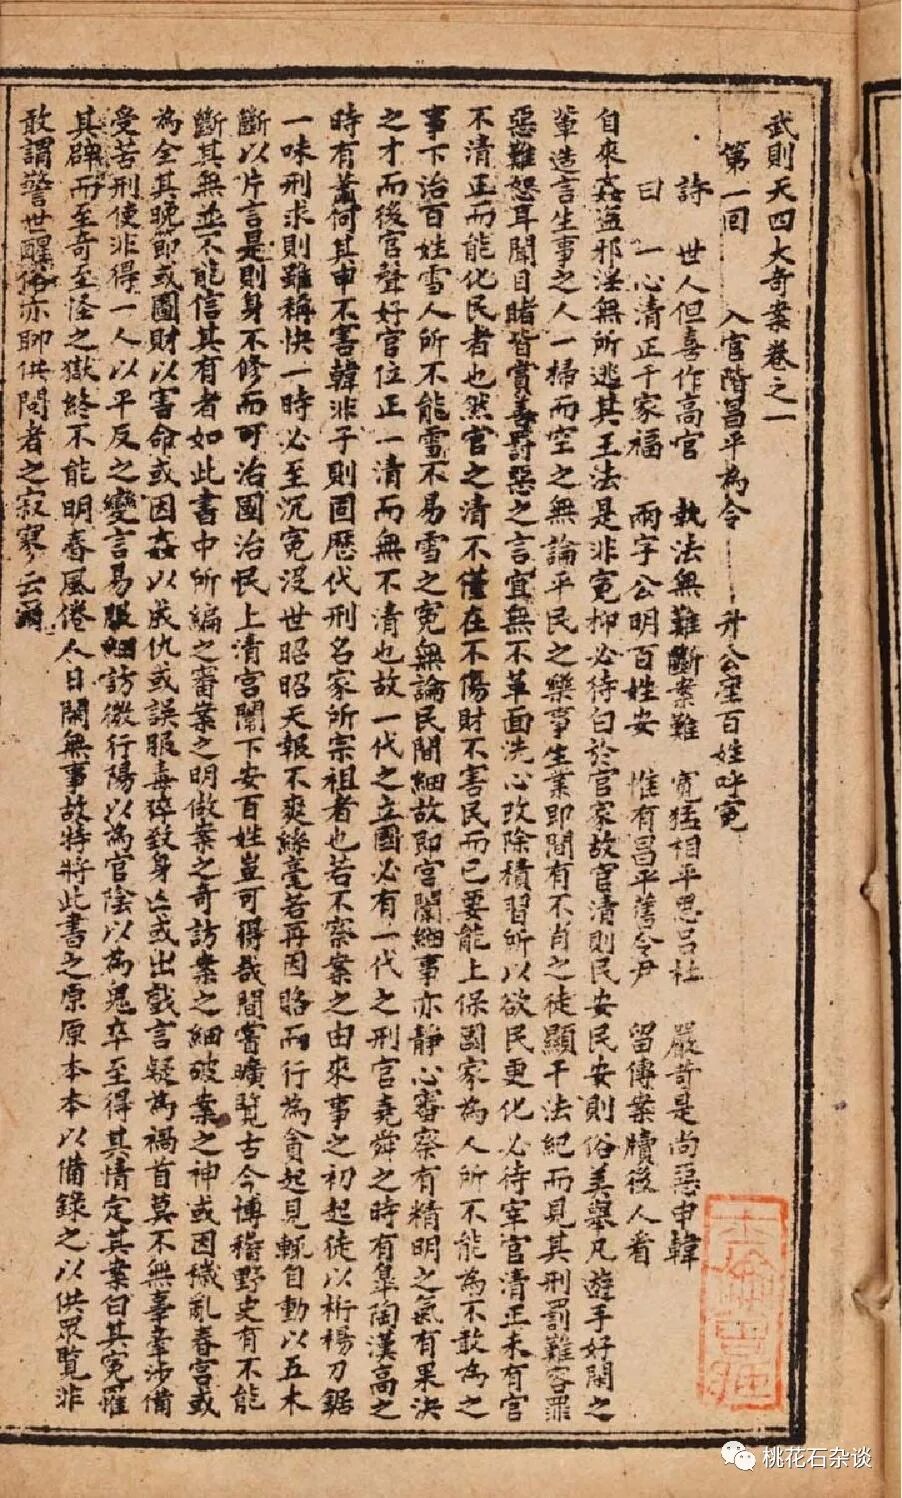 武則天四大奇案卷之一
第一回　入官階昌平為令　升公堂百姓呼冤
詩　世人但喜作高官　執法無難斷案難　寬猛相平思呂杜　嚴苛是尚惡申韓
曰　一心清正千家福　兩字公明百姓安　惟有昌平舊令尹　留傳案牘後人看
自來姦盜邪淫無所逃其王法是非冤抑必待白於官家故官清則民安民安則俗美舉凡遊手好閑之
輩造言生事之人一掃而空之無論平民之樂事生業即間有不肖之徒顯干法紀而見其刑罰難容罪
惡難恕耳聞目睹皆賞善罰惡之言宜無不革面洗心改除積習所以欲民更化必待宰官清正未有官
不清正而能化民者也然官之清不僅在不傷財不害民而已要能上保國家為人所不能為不敢為之
事下治百姓雪人所不能雪不易雪之冤無論民間細故即宮闈細事亦靜心審察有精明之氣有果決
之才而後官聲好官位正一清而無不清也故一代之立國必有一代之刑官堯舜之時有臯陶漢高之
時有蕭何其申不害韓非子則固歷代刑名家所宗祖者也若不察案之由來事之初起徒以桁楊刀鋸
一味刑求則雖稱快一時必至沉冤沒世昭昭天報不爽絲毫若再因賂而行為貪起見輒自動以五木
斷以片言是則身不修而可治國治民上清宮闈下安百姓豈可得哉間嘗曠覽古今博稽野史有不能
斷其無並不能信其有者如此書中所編之審案之明做案之奇訪案之細破案之神或因穢亂春宮或
為全其晚節或圖財以害命或因姦以成仇或誤服毒猝致身亡或出戲言疑為禍首莫不無辜牽涉備
受苦刑使非得一人以平反之變言易服細訪微行陽以為官陰以為鬼卒至得其情定其案白其冤罹
其辟而至奇至怪之獄終不能明春風倦人日閑無事故特將此書之原原本本以備錄之以供眾覽非
敢謂警世醒俗亦聊供問者之寂寥云爾
桃花石杂谈